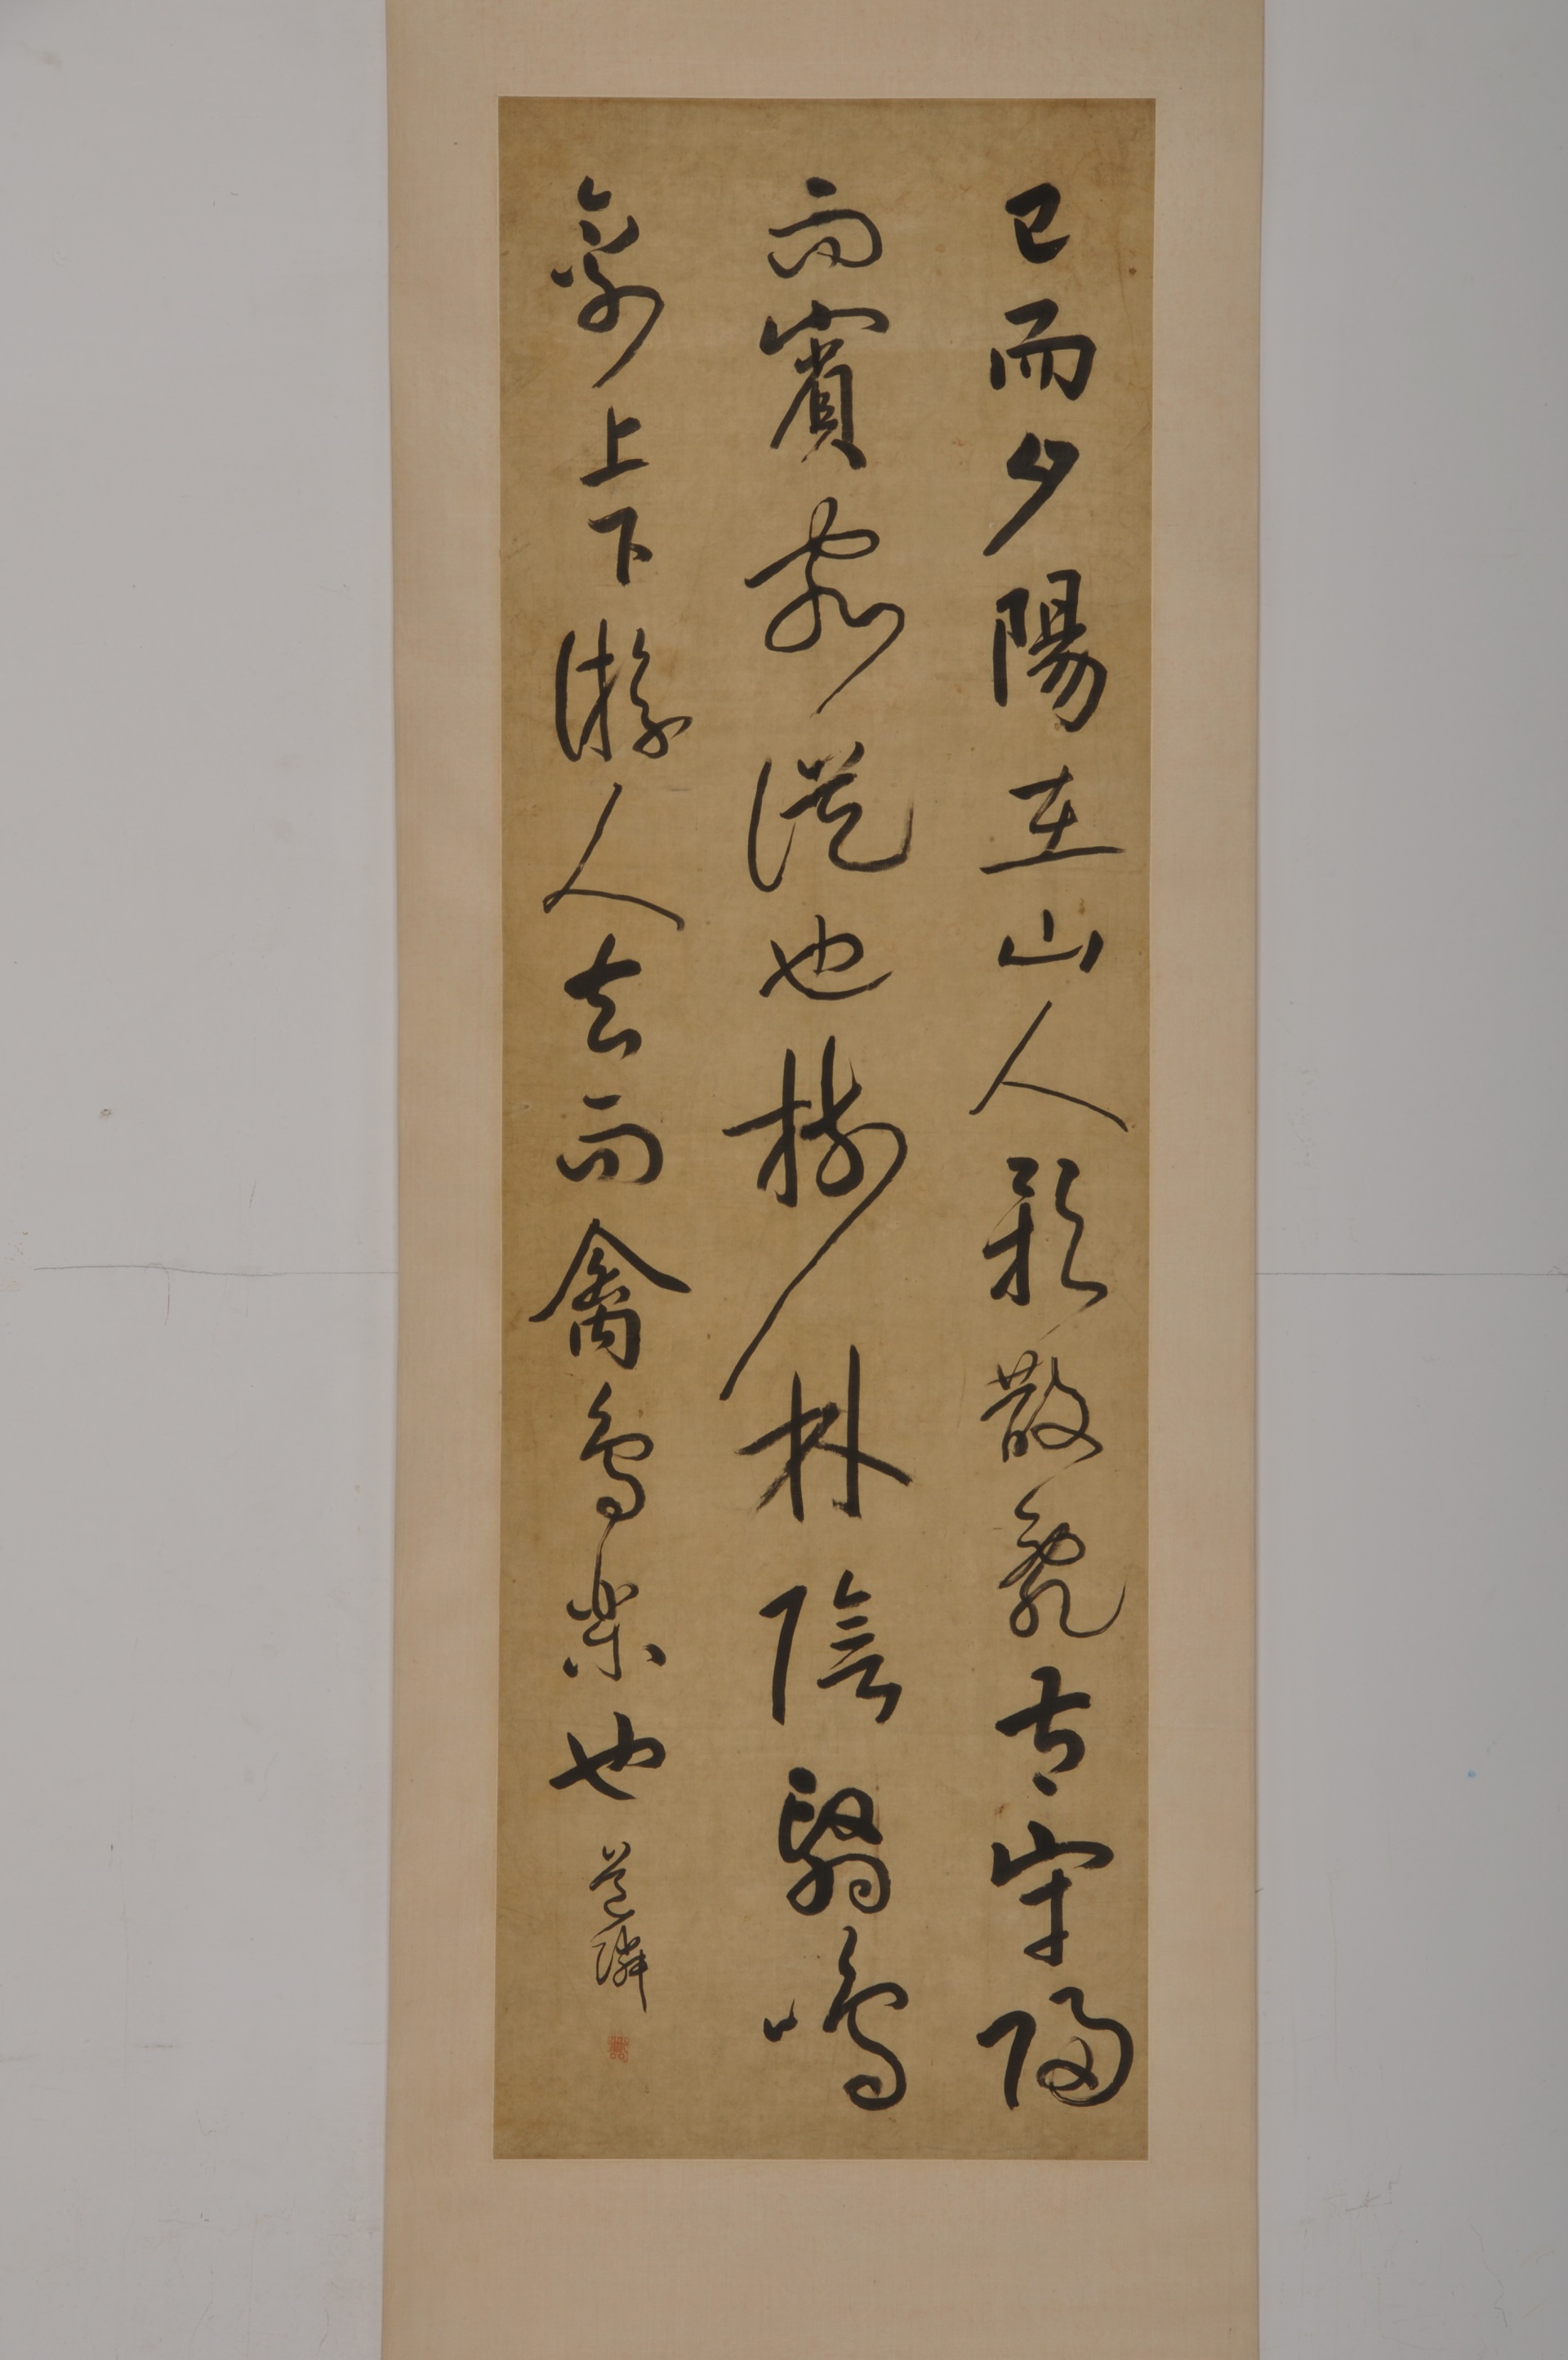 已而夕陽在山人影散亂太守歸
而賓客從也樹林陰翳鳴
聲上下游人去而禽鳥樂也
道隣